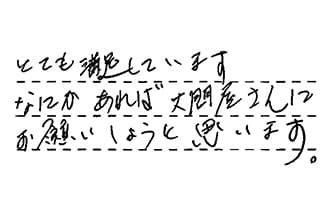 とても満足しています
なにかあれば大問屋さんに
お願いしようと思います。